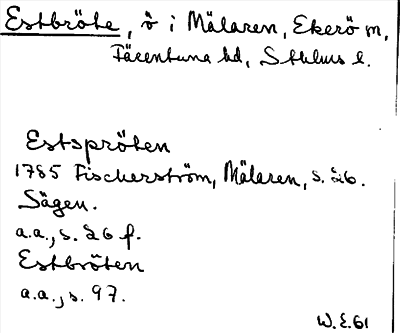 Estbröte, ö i Mälaren, Ekerö m,
Färentuna hd, Sthlms l.
Estspröten
1785 Fischerström, Mälaren, s. 26.
Sägen.
a.a., s. 26 f.
Estbröten
a.a., s. 97.
W.E. 61